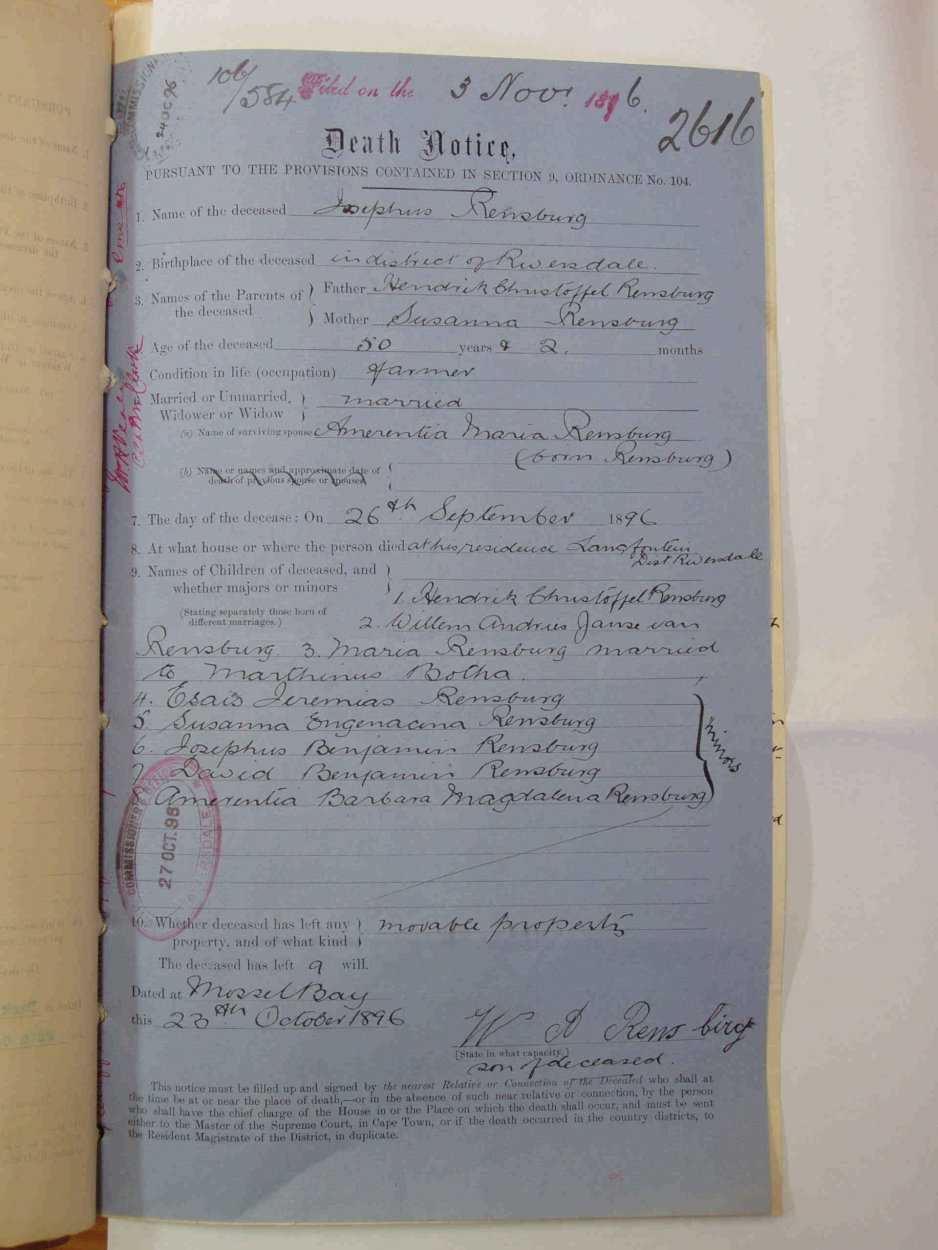 106/584 Filed on the 3 Nov. 1896.
2616
24 OC 96
Death Notice,
PURSUANT TO THE PROVISIONS CONTAINED IN SECTION 9, ORDINANCE No. 104.
1. Name of the deceased Josephus Rensburg
2. Birthplace of the deceased in district of Riversdale.
3. Names of the Parents of the deceased } Father Hendrik Christoffel Rensburg
Mother Susanna Rensburg
Age of the deceased 50 years & 2. months
Condition in life (occupation) farmer
Married or Unmarried, Widower or Widow } married
(a) Name of surviving spouse Amerentia Maria Rensburg
(born Rensburg)
(b) Name or names and approximate date of
death of previous spouse or spouses
7. The day of the decease: On 26th September 1896
8. At what house or where the person died at his residence Langfontein
Dist Riversdale
9. Names of Children of deceased, and
whether majors or minors
1. Hendrik Christoffel Rensburg
(Stating separately those born of
different marriages.)
2. Willem Andries Janse van
Rensburg 3. Maria Rensburg married
to Marthinus Botha.
4. Esais Jeremias Rensburg
5 Susanna Engenacina Rensburg
6. Josephus Benjamin Rensburg
7 David Benjamin Rensburg
Amerentia Barbara Magdalena Rensburg
minors
27 OCT. 96
10. Whether deceased has left any
property, and of what kind } movable property
The deceased has left a will.
Dated at Mossel Bay
this 23th October 1896
W A Rensburg
[State in what capacity.]
son of deceased.
This notice must be filled up and signed by the nearest Relative or Connection of the Deceased who shall at
the time be at or near the place of death,—or in the absence of such near relative or connection, by the person
who shall have the chief charge of the House in or the Place on which the death shall occur, and must be sent
either to the Master of the Supreme Court, in Cape Town, or if the death occurred in the country districts, to
the Resident Magistrate of the District, in duplicate.